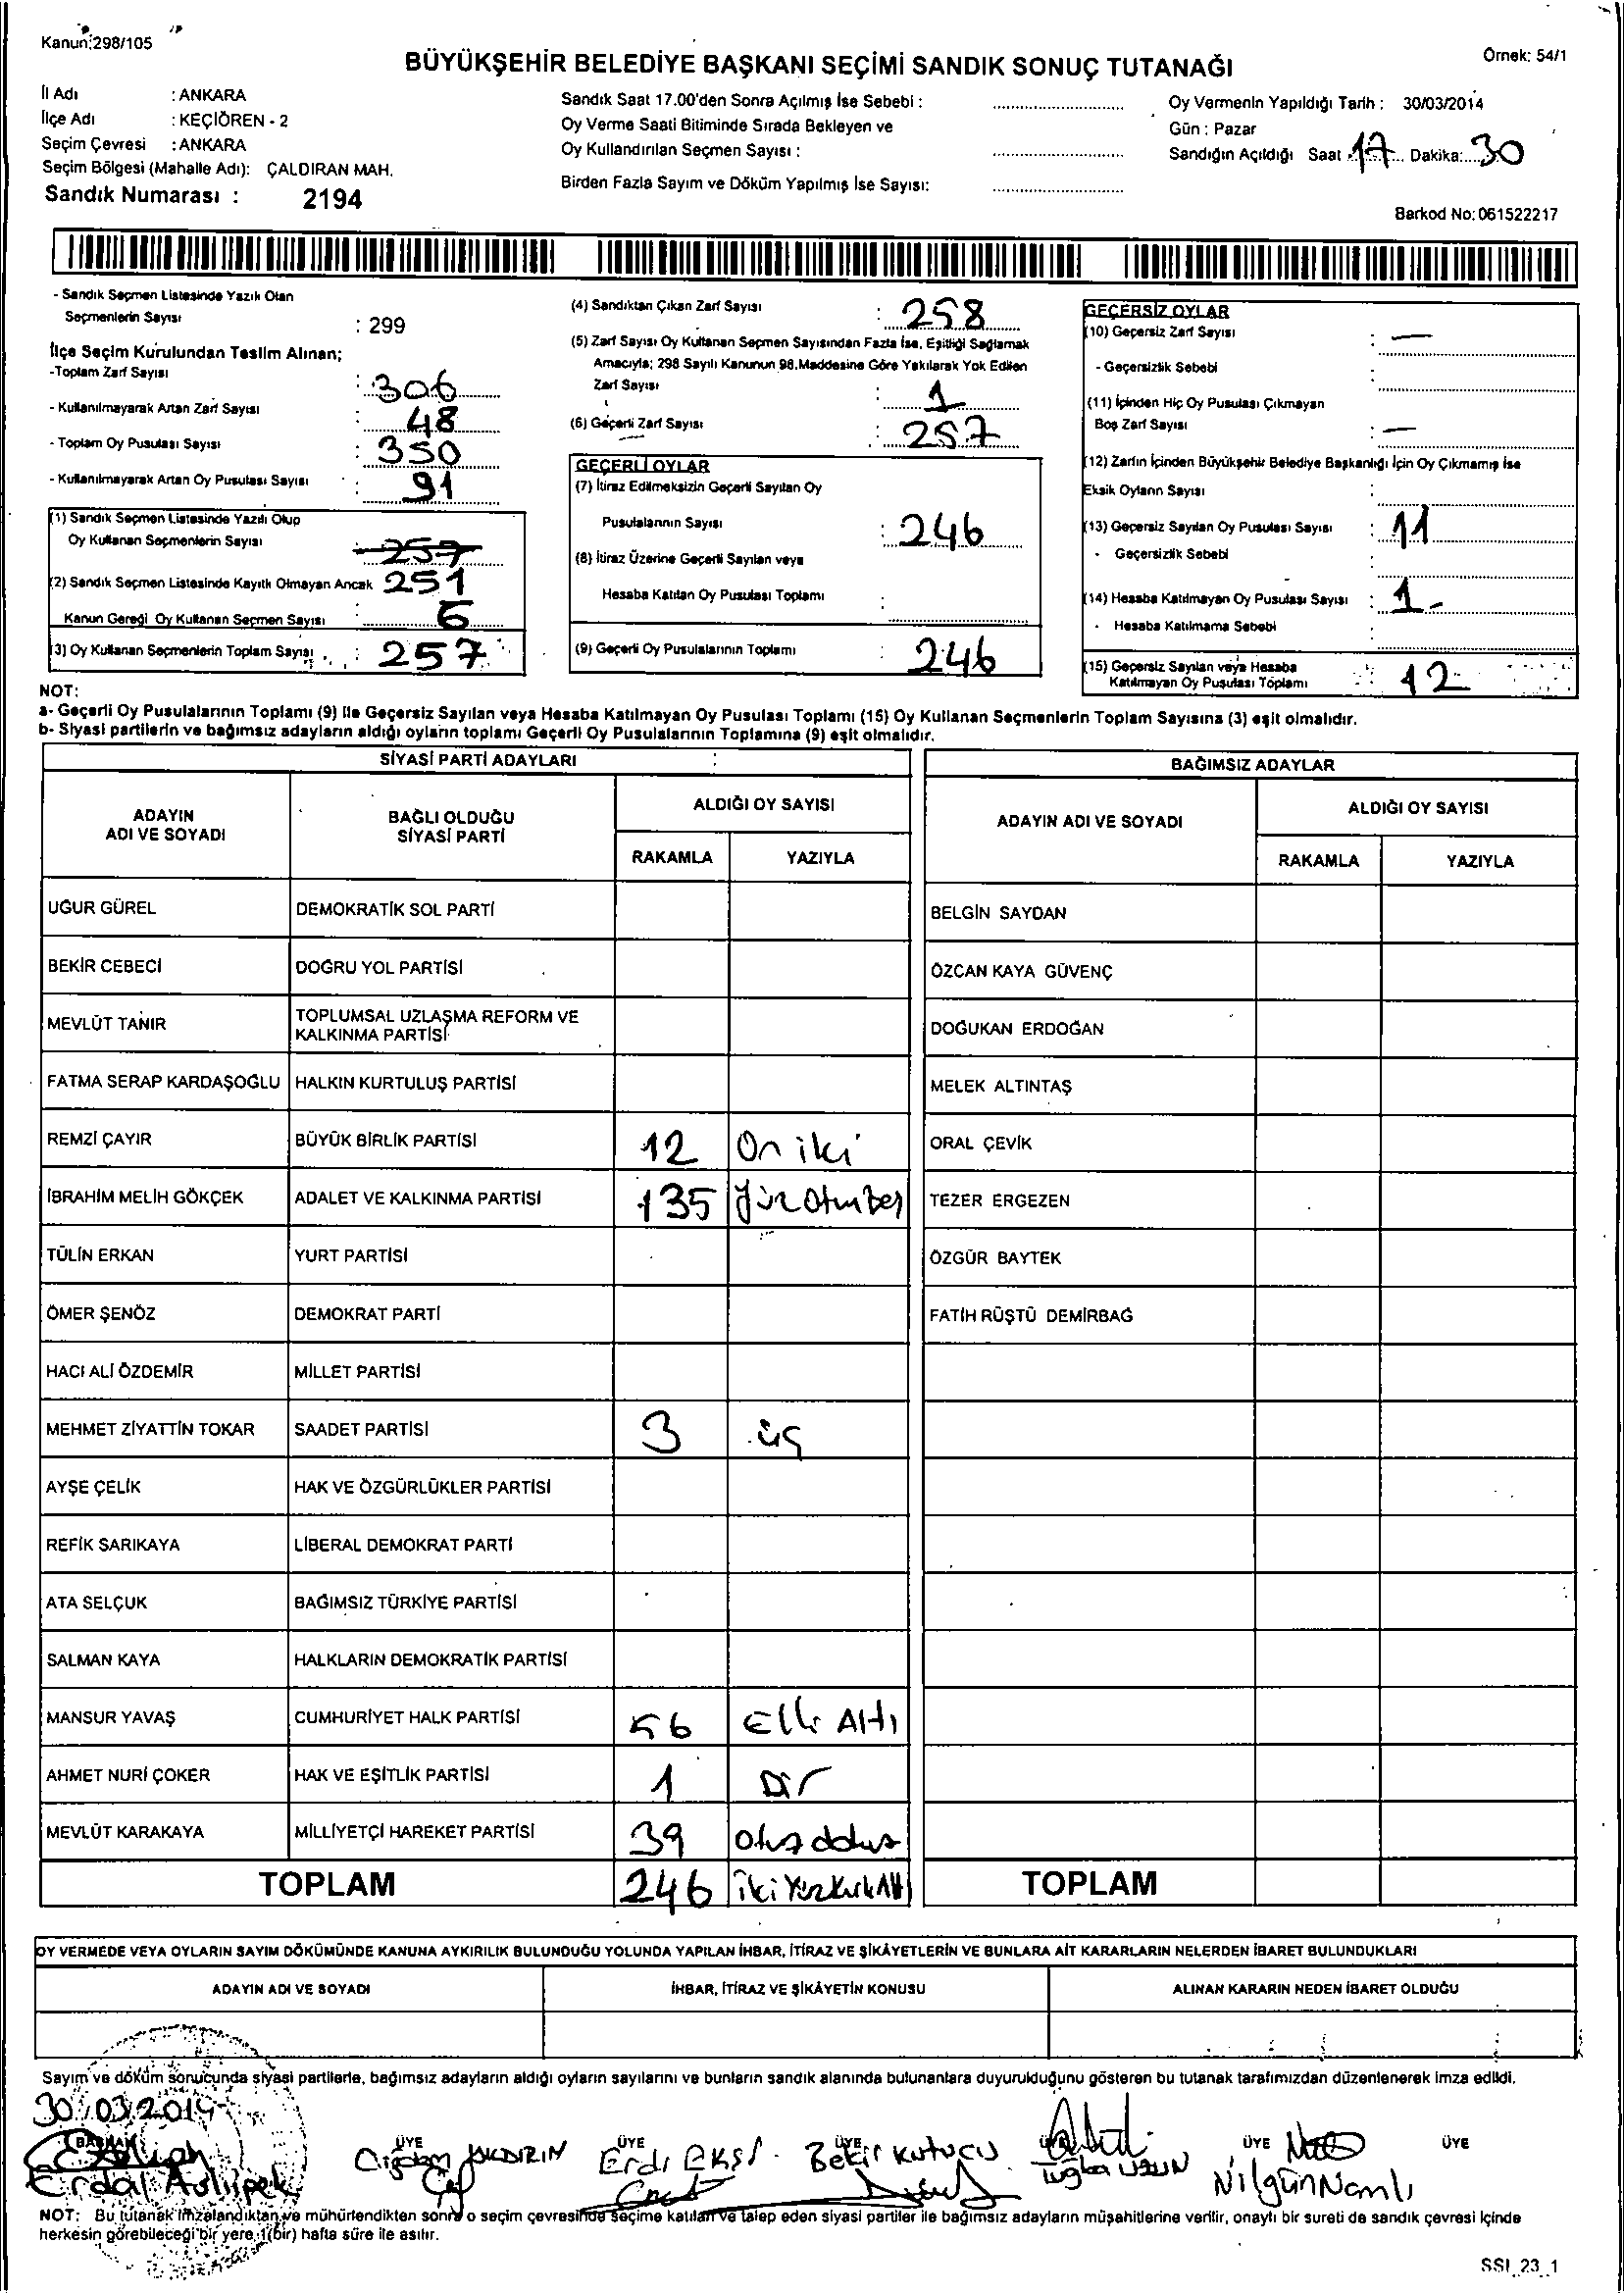 Kanun:298/105
Örnek: 54/1
BÜYÜKŞEHİR BELEDİYE BAŞKANI SEÇİMİ SANDIK SONUÇ TUTANAĞI
İl Adı : ANKARA
İlçe Adı : KEÇİÖREN - 2
Seçim Çevresi : ANKARA
Seçim Bölgesi (Mahalle Adı): ÇALDIRAN MAH.
Sandık Numarası : 2194
Sandık Saat 17.00'den Sonra Açılmış İse Sebebi :
Oy Verme Saati Bitiminde Sırada Bekleyen ve
Oy Kullandırılan Seçmen Sayısı :
Birden Fazla Sayım ve Döküm Yapılmış İse Sayısı:
Oy Vermenin Yapıldığı Tarih : 30/03/2014
Gün : Pazar
Sandığın Açıldığı Saat : 17 Dakika: 30
Barkod No: 061522217
- Sandık Seçmen Listesinde Yazılı Olan
Seçmenlerin Sayısı : 299
İlçe Seçim Kurulundan Teslim Alınan;
-Toplam Zarf Sayısı : 306
- Kullanılmayarak Artan Zarf Sayısı : 48
- Toplam Oy Pusulası Sayısı : 350
- Kullanılmayarak Artan Oy Pusulası Sayısı : 91
(1) Sandık Seçmen Listesinde Yazılı Olup
Oy Kullanan Seçmenlerin Sayısı 257
251
(2) Sandık Seçmen Listesinde Kayıtlı Olmayan Ancak
Kanun Gereği Oy Kullanan Seçmen Sayısı : 6
(3) Oy Kullanan Seçmenlerin Toplam Sayısı : 257
(4) Sandıktan Çıkan Zarf Sayısı : 258
(5) Zarf Sayısı Oy Kullanan Seçmen Sayısından Fazla İse, Eşitliği Sağlamak
Amacıyla; 298 Sayılı Kanunun 98.Maddesine Göre Yakılarak Yok Edilen
Zarf Sayısı : 1
(6) Geçerli Zarf Sayısı : 257
GEÇERLİ OYLAR
(7) İtiraz Edilmeksizin Geçerli Sayılan Oy
Pusulalarının Sayısı : 246
(8) İtiraz Üzerine Geçerli Sayılan veya
Hesaba Katılan Oy Pusulası Toplamı :
(9) Geçerli Oy Pusulalarının Toplamı : 246
GEÇERSİZ OYLAR
(10) Geçersiz Zarf Sayısı : —
- Geçersizlik Sebebi :
(11) İçinden Hiç Oy Pusulası Çıkmayan
Boş Zarf Sayısı : —
(12) Zarfın İçinden Büyükşehir Belediye Başkanlığı İçin Oy Çıkmamış İse
Eksik Oyların Sayısı :
(13) Geçersiz Sayılan Oy Pusulası Sayısı : 11
- Geçersizlik Sebebi :
(14) Hesaba Katılmayan Oy Pusulası Sayısı : 1-
- Hesaba Katılmama Sebebi :
(15) Geçersiz Sayılan veya Hesaba
Katılmayan Oy Pusulası Toplamı : 12
NOT:
a- Geçerli Oy Pusulalarının Toplamı (9) ile Geçersiz Sayılan veya Hesaba Katılmayan Oy Pusulası Toplamı (15) Oy Kullanan Seçmenlerin Toplam Sayısına (3) eşit olmalıdır.
b- Siyasi partilerin ve bağımsız adayların aldığı oyların toplamı Geçerli Oy Pusulalarının Toplamına (9) eşit olmalıdır.
SİYASİ PARTİ ADAYLARI
ADAYIN ADI VE SOYADI
BAĞLI OLDUĞU SİYASİ PARTİ
ALDIĞI OY SAYISI
RAKAMLA YAZIYLA
UĞUR GÜREL DEMOKRATİK SOL PARTİ
BEKİR CEBECİ DOĞRU YOL PARTİSİ
MEVLÜT TANIR TOPLUMSAL UZLAŞMA REFORM VE
KALKINMA PARTİSİ
FATMA SERAP KARDAŞOĞLU HALKIN KURTULUŞ PARTİSİ
REMZİ ÇAYIR BÜYÜK BİRLİK PARTİSİ 12 On iki
İBRAHİM MELİH GÖKÇEK ADALET VE KALKINMA PARTİSİ 135 yüz Otuz beş
TÜLİN ERKAN YURT PARTİSİ
ÖMER ŞENÖZ DEMOKRAT PARTİ
HACI ALİ ÖZDEMİR MİLLET PARTİSİ
MEHMET ZİYATTİN TOKAR SAADET PARTİSİ 3 üç
AYŞE ÇELİK HAK VE ÖZGÜRLÜKLER PARTİSİ
REFİK SARIKAYA LİBERAL DEMOKRAT PARTİ
ATA SELÇUK BAĞIMSIZ TÜRKİYE PARTİSİ
SALMAN KAYA HALKLARIN DEMOKRATİK PARTİSİ
MANSUR YAVAŞ CUMHURİYET HALK PARTİSİ 56 Elli Altı
AHMET NURİ ÇOKER HAK VE EŞİTLİK PARTİSİ 1 Bir
MEVLÜT KARAKAYA MİLLİYETÇİ HAREKET PARTİSİ 39 otuz dokuz
TOPLAM 246 iki Yüz Kırk Altı
BAĞIMSIZ ADAYLAR
ADAYIN ADI VE SOYADI
ALDIĞI OY SAYISI
RAKAMLA YAZIYLA
BELGİN SAYDAN
ÖZCAN KAYA GÜVENÇ
DOĞUKAN ERDOĞAN
MELEK ALTINTAŞ
ORAL ÇEVİK
TEZER ERGEZEN
ÖZGÜR BAYTEK
FATİH RÜŞTÜ DEMİRBAĞ
TOPLAM
OY VERMEDE VEYA OYLARIN SAYIM DÖKÜMÜNDE KANUNA AYKIRILIK BULUNDUĞU YOLUNDA YAPILAN İHBAR, İTİRAZ VE ŞİKÂYETLERİN VE BUNLARA AİT KARARLARIN NELERDEN İBARET BULUNDUKLARI
ADAYIN ADI VE SOYADI İHBAR, İTİRAZ VE ŞİKÂYETİN KONUSU ALINAN KARARIN NEDEN İBARET OLDUĞU
Sayım ve döküm sonucunda siyasi partilerle, bağımsız adayların aldığı oyların sayılarını ve bunların sandık alanında bulunanlara duyurulduğunu gösteren bu tutanak tarafımızdan düzenlenerek imza edildi.
30/03/2014
BAŞKAN ÜYE ÜYE ÜYE ÜYE ÜYE
Erdal Çiğdem Erdi EKŞİ Bekir KUTUCU Tuğba UZUN Nilgün Namlı
NOT: Bu tutanak imzalandıktan ve mühürlendikten sonra o seçim çevresinde seçime katılan ve talep eden siyasi partiler ile bağımsız adayların müşahitlerine verilir, onaylı bir sureti de sandık çevresi içinde
herkesin görebileceği bir yere 1(bir) hafta süre ile asılır.
SSI_23_1